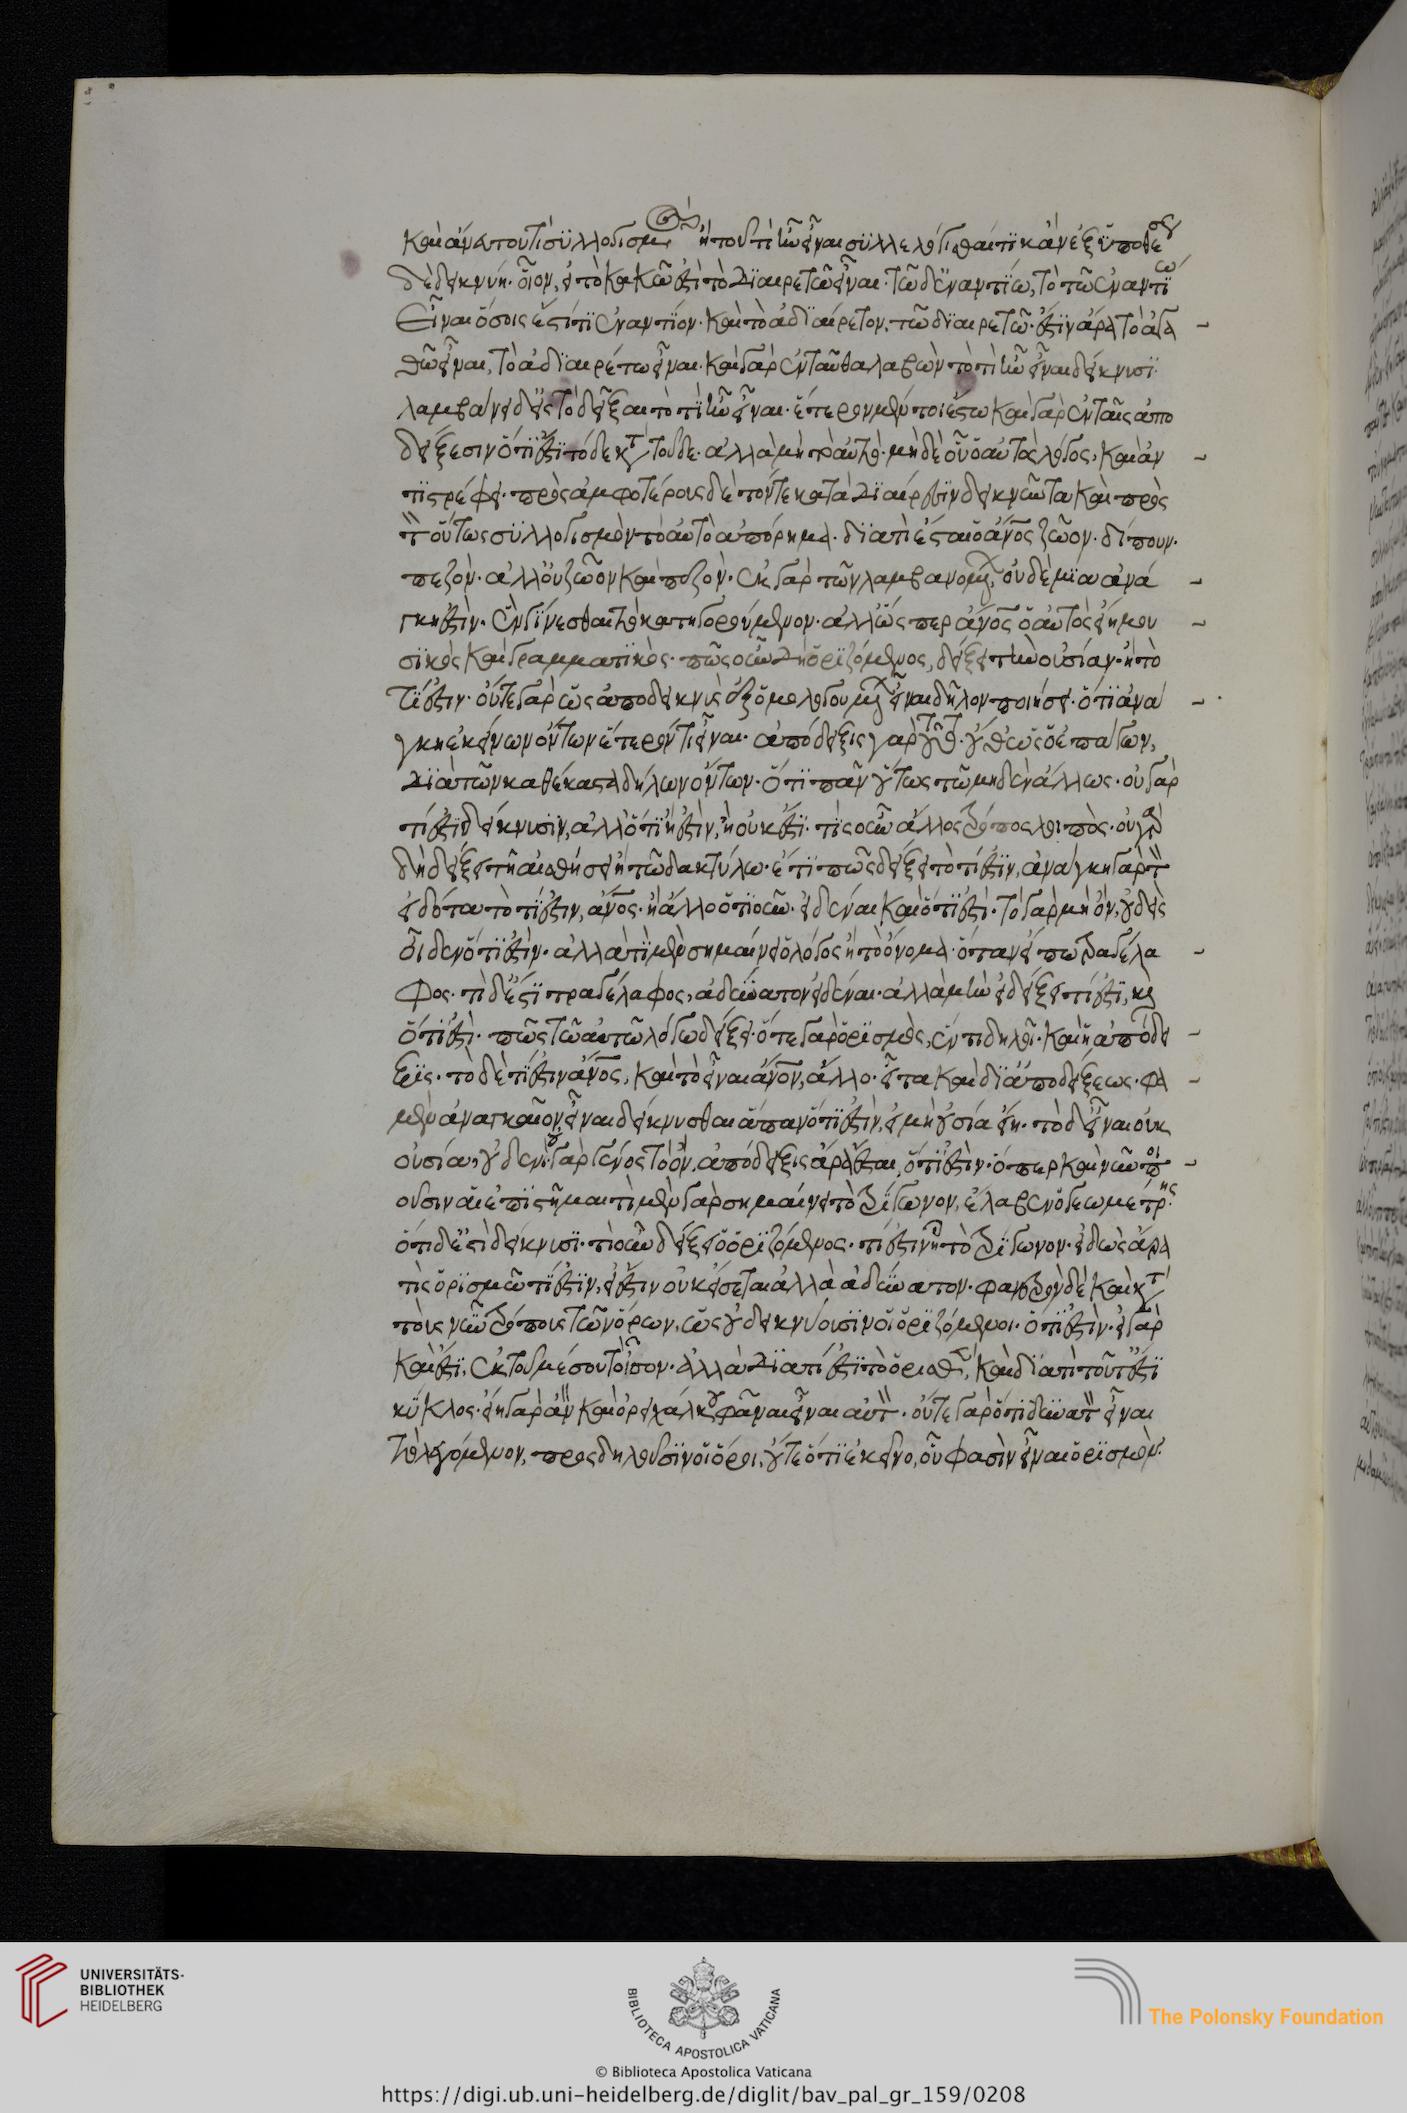 καὶ ἄνευ τοῦ τί συλλογισμὸς ἢ τοῦ τί ἦν εἶναι συλλελογίσθαι τι κἂν ἐξ ὑποθέσεως
δὲ δεικνύη· οἷον, εἰ τὸ κακῶ ἐστὶ τὸ διαιρετῶ εἶναι· τῶ δ' ἐναντίω, τὸ τῶ ἐναντίω
εἶναι ὅσοις ἔστι τι ἐναντίον· καὶ τὸ ἀδιαίρετον, τῶ διαιρετῶ· ἔστιν ἄρα τὸ ἀγα
θῶ εἶναι, τὸ ἀδιαιρέτω εἶναι· καὶ γὰρ ἐνταῦθα λαβὼν τὸ τί ἦν εἶναι δείκνυσι·
λαμβάνει δ' εἰς τὸ δεῖξαι τὸ τί ἦν εἶναι· ἕτερον μέντοι ἔστω καὶ γὰρ ἐν ταῖς ἀπο
δείξεσιν ὅτι ἐστὶ τόδε κατὰ τοῦδε· ἀλλὰ μὴ αὐτὸ· μηδὲ οὗ ὁ αὐτὸς λόγος, καὶ ἀν
τιστρέφει· πρὸς ἀμφοτέρους δὲ τόν τε κατὰ διαίρεσιν δεικνῦντα καὶ πρὸς
τὸν οὕτως συλλογισμὸν τὸ αὐτὸ ἀπόρημα· διὰ τί ἔσται ὁ ἄνος ζῶον· δίπουν·
πεζὸν· ἀλλ' οὐ ζῶον καὶ πεζὸν· ἐκ γὰρ τῶν λαμβανομένων, οὐδεμία ἀνά
γκη ἐστὶν· ἓν γίνεσθαι τὸ κατηγορούμενον· ἀλλ' ὥσπερ ἄνος ὁ αὐτὸς εἴη μου
σικὸς καὶ γραμματικὸς· πῶς οὖν δὴ ὁριζόμενος, δείξει τὴν οὐσίαν· ἢ τὸ
τί ἐστιν· οὔτε γὰρ ὡς ἀποδεικνὺς ἐξ ὁμολογουμένων εἶναι δῆλον ποιήσει· ὅτι ἀνά
γκη ἐκείνων ὄντων ἕτερόν τι εἶναι· ἀπόδειξις γὰρ τοῦτο· οὔθ' ὡς ὁ ἐπάγων,
διὰ τῶν καθέκαστα δήλων ὄντων· ὅτι πᾶν οὕτως τῶ μηδὲν ἄλλως· οὐ γὰρ
τί ἐστι δείκνυσιν, ἀλλ' ὅτι ἢ ἐστὶν, ἢ οὐκ ἔστι· τίς οὖν ἄλλος τρόπος λοιπὸς· οὐ γὰρ
δὴ δείξει τῆ αἰσθήσει ἢ τῶ δακτύλω· ἔτι πῶς δείξει τὸ τί ἐστιν, ἀνάγκη γὰρ τὸν
εἰδότα τὸ τί ἐστιν, ἄνος· ἢ ἄλλο ὁτιοῦν· εἰδέναι καὶ ὅτι ἐστὶ· τὸ γὰρ μὴ ὂν, οὐδεὶς
οἶδεν ὅτι ἐστὶν· ἀλλὰ τί μὲν σημαίνει ὁ λόγος ἢ τὸ ὄνομα· ὅταν εἴπω τραγέλα
φος· τί δ' ἐστὶ τραγέλαφος, ἀδύνατον εἰδέναι· ἀλλὰ μὴν εἰ δείξει τί ἐστι, καὶ
ὅτι ἐστὶ· πῶς τῶ αὐτῶ λόγω δείξει· ὅ τε γὰρ ὁρισμὸς, ἕν τι δηλοῖ· καὶ ἡ ἀπόδει
ξις· τὸ δὲ τί ἐστιν ἄνος, καὶ τὸ εἶναι ἄνον, ἄλλο· εἶτα καὶ δι' ἀποδείξεως· φα
μὲν ἀναγκαῖον εἶναι δείκνυσθαι ἅπαν ὅτι ἐστὶν, εἰ μὴ οὐσία εἴη· τὸ δ' εἶναι οὐκ
οὐσία, οὐδενί· οὐ γὰρ γένος τὸ ὂν, ἀπόδειξις ἄρα ἔσται, ὅτι ἐστὶν· ὅπερ καὶ νῦν ποι
οῦσιν αἱ ἐπιστῆμαι τί μὲν γὰρ σημαίνει τὸ τρίγωνον, ἔλαβεν ὁ γεωμέτρης
ὅτι δ' ἐστὶ δείκνυσι· τί οὖν δείξει ὁ ὁριζόμενος· τί ἐστιν ἢ τὸ τρίγωνον· εἰδὼς ἄρα
τὶς ὁρισμῶ τί ἐστιν, εἰ ἔστιν οὐκ εἴσεται ἀλλὰ ἀδύνατον· φανερὸν δὲ καὶ κατὰ
τοὺς νῦν τρόπους τῶν ὅρων, ὡς οὐ δεικνύουσιν οἱ ὁριζόμενοι· ὅτι ἐστὶν· εἰ γὰρ
καὶ ἔστι, ἐκ τοῦ μέσου τὸ ἴσον· ἀλλὰ διὰ τί ἐστι τὸ ὁρισθὲν, καὶ διὰ τί τοῦτ' ἐστὶ
κύκλος· εἴη γὰρ ἂν καὶ ὀρειχάλκου φᾶναι εἶναι αὐτὸν· οὔτε γὰρ ὅτι δυνατὸν εἶναι
τὸ λεγόμενον, προσδηλοῦσιν οἱ ὅροι, οὔτε ὅτι ἐκεῖνο, οὗ φασὶν εἶναι ὁρισμὸν·
UNIVERSITÄTS-
BIBLIOTHEK
HEIDELBERG
BIBLIOTECA APOSTOLICA VATICANA
The Polonsky Foundation
© Biblioteca Apostolica Vaticana
https://digi.ub.uni-heidelberg.de/diglit/bav_pal_gr_159/0208